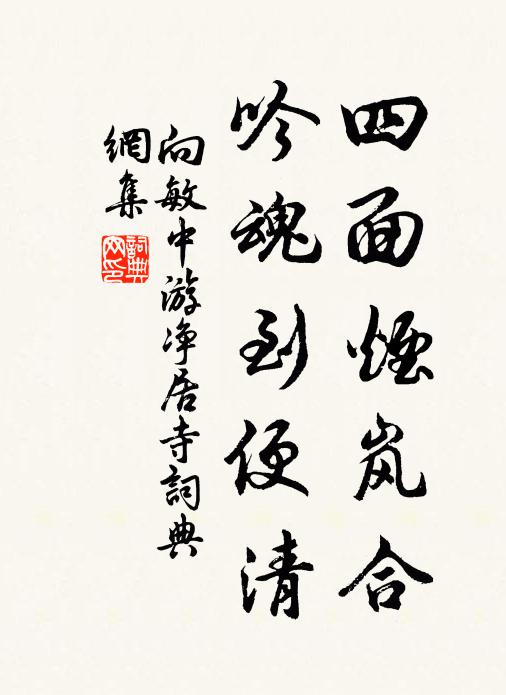 四面煙岚合
吟魂到便清
向敏中游净居寺詞典
網集
詞典网印